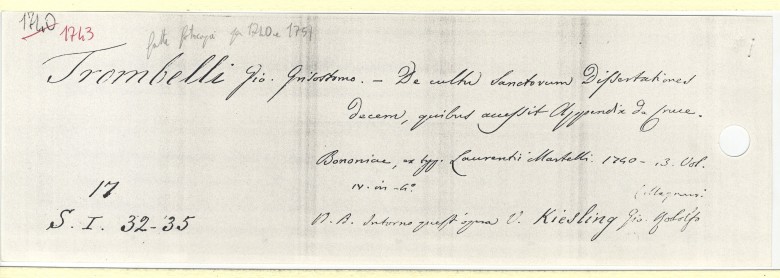 1740
1743
fatte fotocopie per 1740 e 1751
Trombelli Gio. Grisostomo. — De cultu Sanctorum Dissertationes
decem, quibus accessit Appendix de Cruce.
Bononiae, ex typ. Laurentii Martelli 1740 - 3. Vol.
IV. in-4°.
17
S. I. 32-35
N. B. Intorno quest'opera V. Kiesling Gio. Rodolfo